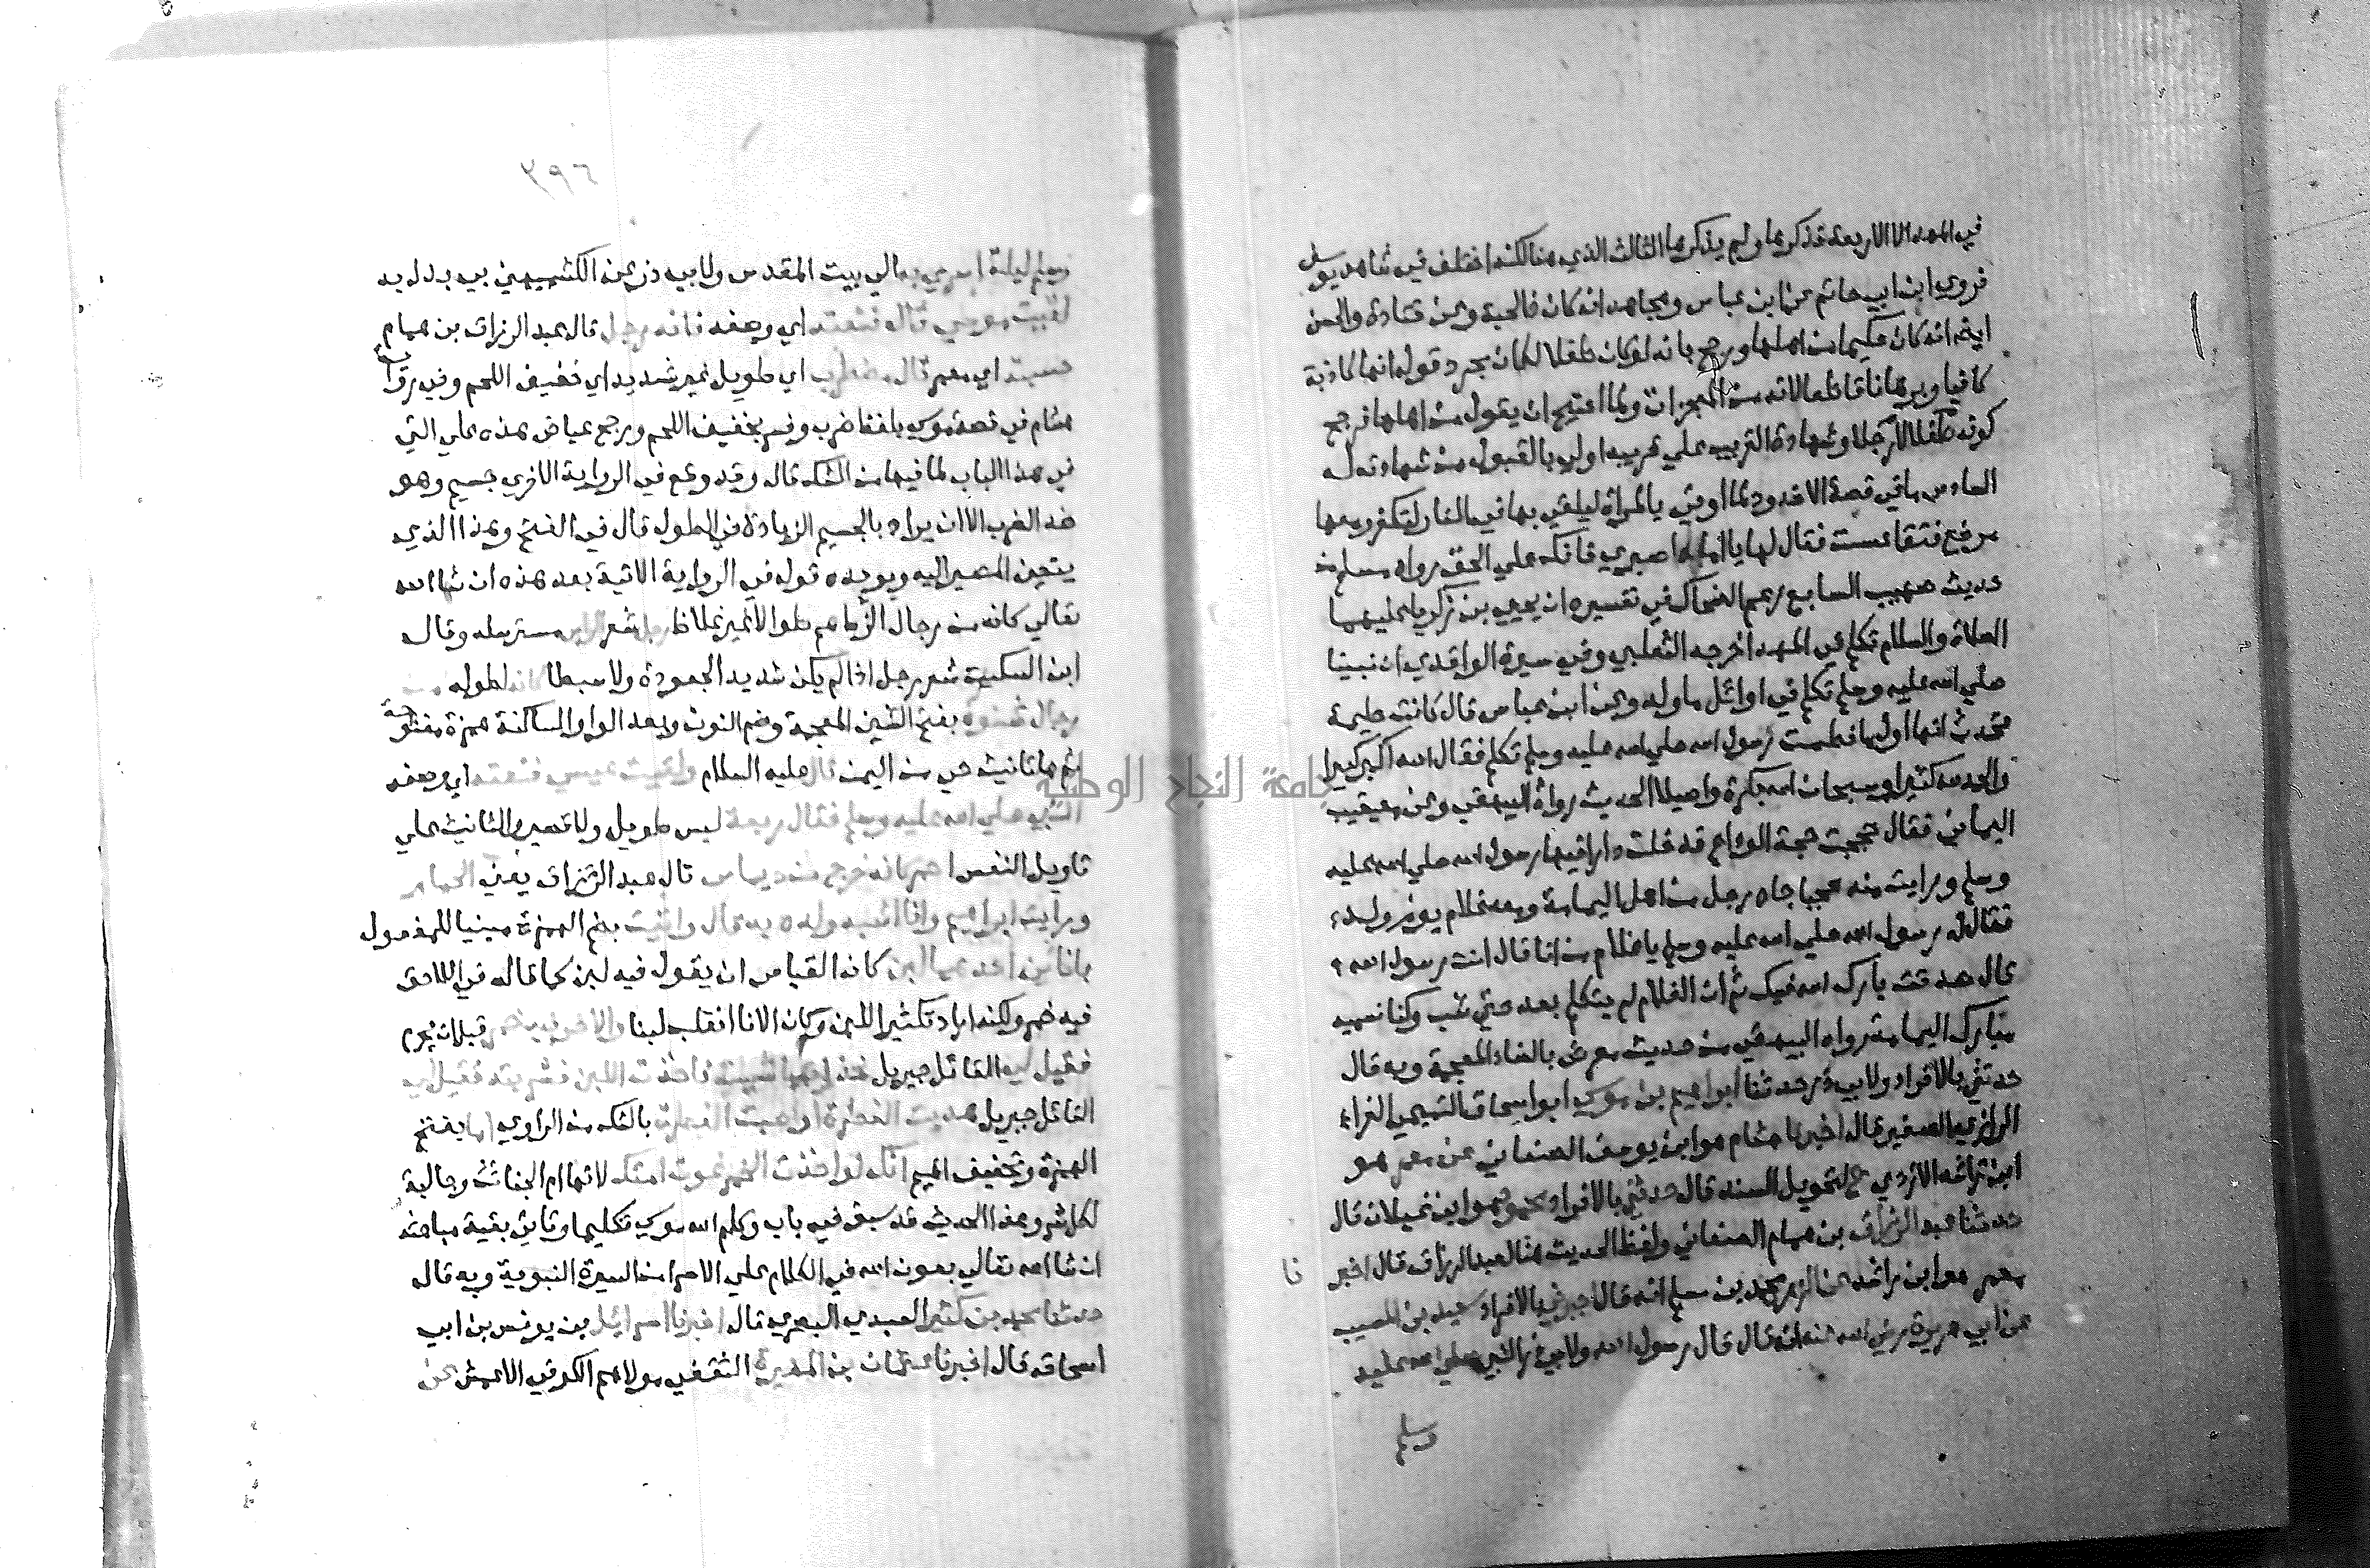 في المهد الا الاربعة فذكرها ولم يذكر هذا الثالث الذي هنا لكنه اختلف في شاهد يوسف
فروي ابن ابي حاتم عن ابن عباس ومجاهد انه كان ذا لحية وعن قتادة والحسن
ايضا انه كان حكيما من اهلها ورجح بانه لو كان طفلا لكان مجرد قوله انها كاذبة
كافيا وبرهانا قاطعا لانه من المعجزات ولما احتيج ان يقول من اهلها فرجح
كونه رجلا لا طفلا وشهادة القريب على قريبه اولي بالقبول من شهادته له
السادس ما في قصة الاخدود لما اوتي بالمراة ليلقي بها في النار لتكفر ومعها
مرضع فتقاعست فقال لها يا اماه اصبري فانك على الحق رواه مسلم من
حديث صهيب السابع زعم الضحاك في تفسيره ان يحيي بن زكريا عليهما
الصلاة والسلام تكلم في المهد اخرجه الثعلبي وفي سيرة الواقدي ان نبينا
صلي الله عليه وسلم تكلم في اوائل ما ولد وعن ابن عباس قال كانت حليمة
تحدث انها اول ما فطمت رسول الله صلي الله عليه وسلم تكلم فقال الله اكبر كبيرا
والحمد لله كثيرا وسبحان الله بكرة واصيلا الحديث رواه البيهقي وعن معيقيب
اليماني فقال حججت حجة الوداع فدخلت دارا فيها رسول الله صلي الله عليه
وسلم ورايت منه عجبا جاه رجل من اهل اليمامة ومعه غلام يوم ولد
فقال له رسول الله صلي الله عليه وسلم يا غلام من انا قال انت رسول الله
قال صدقت بارك الله فيك ثم ان الغلام لم يتكلم بعد حتي شب وكنا نسميه
مبارك اليمامة رواه البيهقي من حديث معرض بالضاد المعجمة وبه قال
حدثني بالافراد ولابي ذر حدثنا ابراهيم بن موسي ابو اسحاق التميمي الفراء
الرازي الصغير قال اخبرنا هشام هو ابن يوسف الصنعاني عن معمر هو
ابن راشد الازدي ح لتحويل السند قال حدثني بالافراد محمود هو ابن غيلان قال
حدثنا عبد الرزاق بن همام الصنعاني ولفظ الحديث هنا لعبد الرزاق قال اخبرنا
معمر هو ابن راشد عن الزهري محمد بن مسلم انه قال اخبرني بالافراد سعيد بن المسيب
عن ابي هريرة رضي الله عنه انه قال قال رسول الله ولابي ذر النبي صلي الله عليه
وسلم
٣٩٦
وسلم ليلة اسري به الي بيت المقدس ولابي ذر عن الكشميهني بي بدل به
لقيت موسي قال فنعته اي وصفه فاذا رجل قال عبد الرزاق بن همام
حسبته اي معمر قال مضطرب اي طويل غير شديد اي خفيف اللحم وفي رواية
هشام في قصة موسي بلفظ ضرب وفسر بخفيف اللحم ورجح عياض هذه علي التي
في هذا الباب لما فيها من الشك قال وقد وقع في الرواية الاخري جسيم وهو
ضد الضرب الا ان يراد بالجسيم الزيادة في الطول قال في الفتح وهذا الذي
يتعين المصير اليه ويويده قوله في الرواية الاتية بعد هذه ان شا الله
تعالي كانه من رجال الزط وهم طوال غير غلاظ رجل شعر الراس مسترسله وقال
ابن السكيت شعر رجل اذا لم يكن شديد الجعودة ولا سبطا كانه لطوله من
رجال شنوة بفتح الشين المعجمة وضم النون وبعد الواو الساكنة همزة مفتوحة
ثم ها تانيث حي من اليمن قال عليه السلام ولقيت عيسي فنعته اي وصفه
النبي صلي الله عليه وسلم فقال ربعة ليس طويل ولا قصير والتانيث علي
تاويل النفس احمر كانه خرج من ديماس قال عبد الرزاق يعني الحمام
ورايت ابراهيم وانا اشبه ولده به قال واتيت بضم الهمزة مبنيا للمفعول
باناين احدهما لبن كان القياس ان يقول فيه لبن كما قال في اللاحق
فيه خمر ولكنه اراد تكثير اللبن وكان الانا انقلب لبنا والاخر فيه خمر قبل ان يحرم
فقيل لي القائل جبريل خذ ايهما شئت فاخذت اللبن فشربته فقيل لي
القائل جبريل هديت الفطرة او اصبت الفطرة بالشك من الراوي اما بفتح
الهمزة وتخفيف الميم انك لو اخذت الخمر غوت امتك لانها ام الخبائث وجالبة
لكل شر وهذا الحديث قد سبق في باب وكلم الله موسي تكليما وتاتي بقية مباحثه
ان شا الله تعالي بعون الله في الكلام علي الاسرا من السيرة النبوية وبه قال
حدثنا محمد بن كثير العبدي البصري قال اخبرنا اسرائيل بن يونس بن ابي
اسحاق قال اخبرنا عثمان بن المغيرة الثقفي مولاهم الكوفي الاعشي عن
جامعة النجاح الوطنية